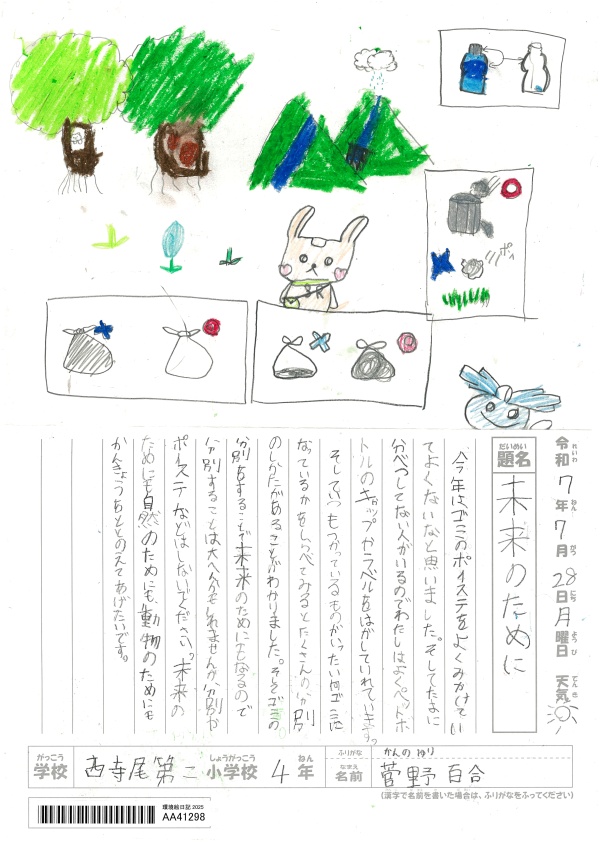 ポイ
令和7年7月28日月曜日 天気
れいわ ねん がつ にち ようび てんき
だいめい
題名
未来のために
今年はゴミのポイステをよくみかけてい
てよくないなと思いました。そしてたまに
分べつしてない人がいるのでわたしはよくペットボ
トルのキャップやラベルをはがしていれています。
そしていつもつかっているものがいったい何ゴミに
なっているかをしらべてみるとたくさんの分別
のしかたがあることがわかりました。そしてゴミの
分別をすることで未来のためにもなるので
分別することは大へんかもしれませんが分別や
ポイステなどはしないでください。未来の
ためにも自然のためにも、動物のためにも
かんきょうをととのえてあげたいです。
がっこう
学校
西寺尾第二
しょうがっこう
小学校
4
ねん
年
ふりがな
かんの ゆり
なまえ
名前
菅野 百合
(漢字で名前を書いた場合は、ふりがなをふってください)
環境絵日記 2025
AA41298